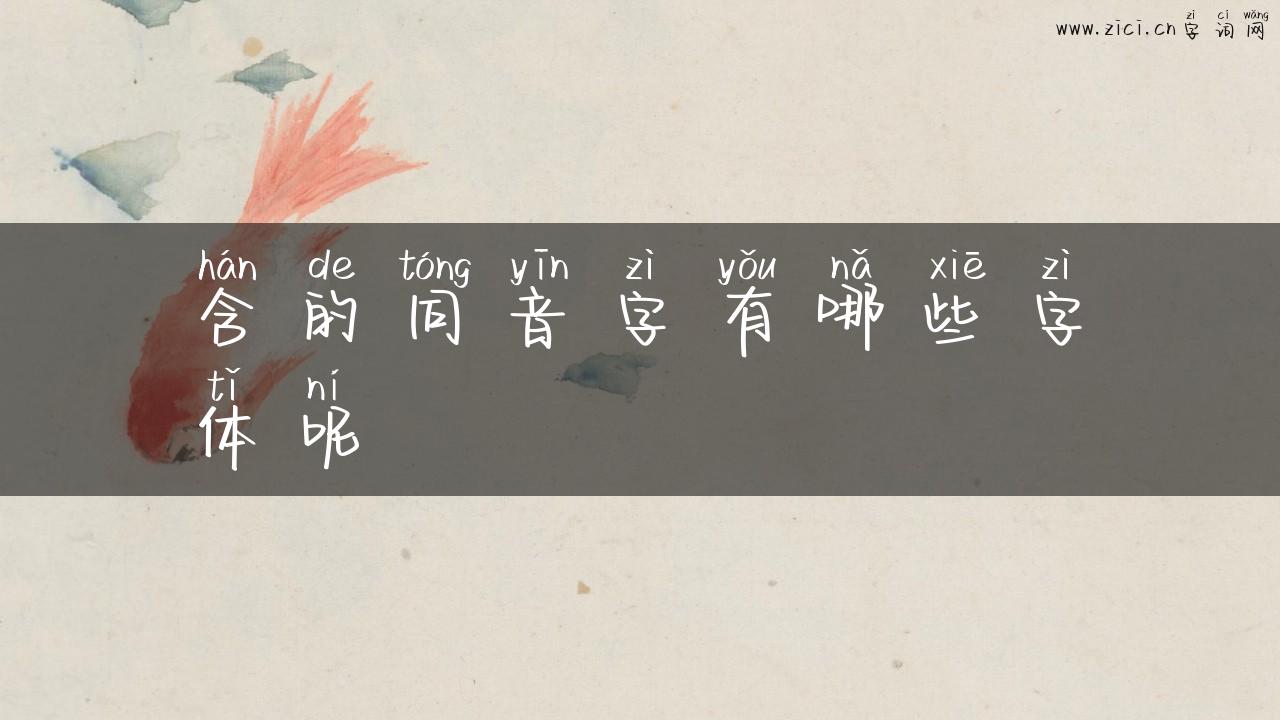 zì cí wǎng
www.zici.cn 字 词 网
hán de tóng yīn zì yǒu nǎ xiē zì
含 的 同 音 字 有 哪 些 字
tǐ ní
体 呢